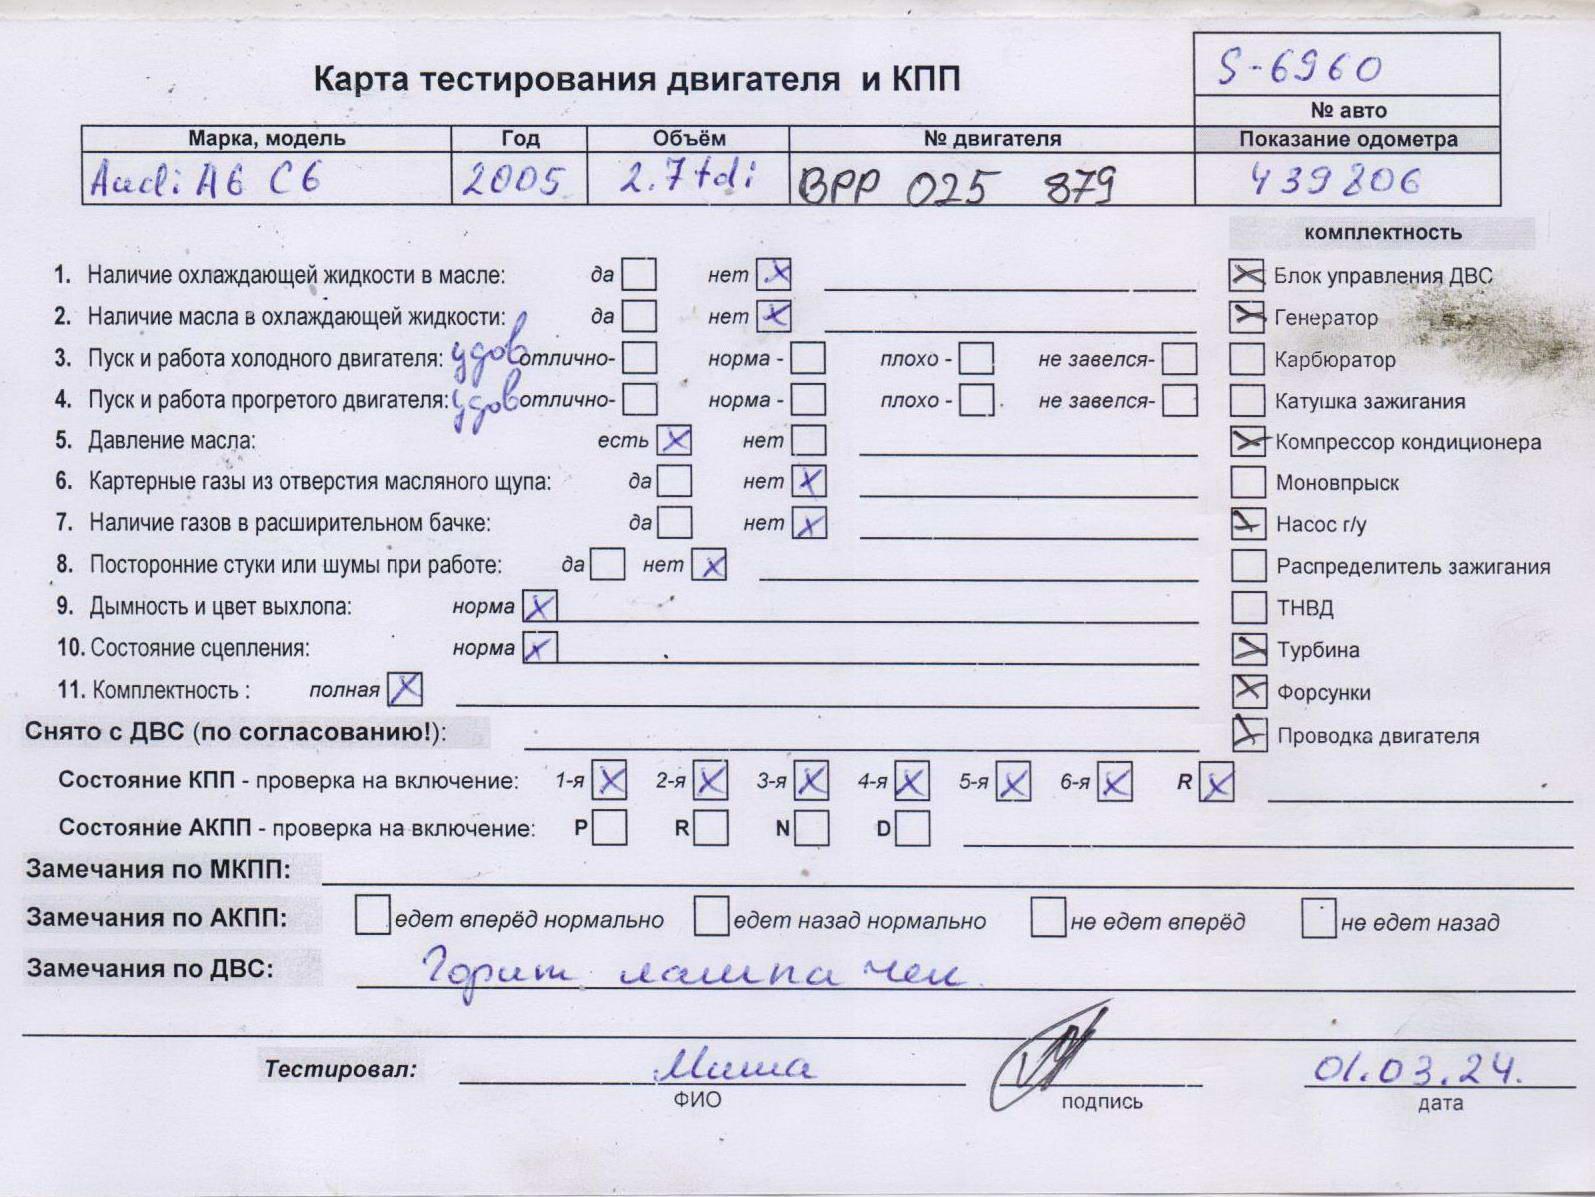 S-6960
Карта тестирования двигателя и КПП
№ авто
Марка, модель Год Объём № двигателя Показание одометра
Audi A6 C6 2005 2.7 tdi BPP 025 879 439806
комплектность
1. Наличие охлаждающей жидкости в масле: да нет X X Блок управления ДВС
2. Наличие масла в охлаждающей жидкости: да нет X X Генератор
3. Пуск и работа холодного двигателя: удов отлично- норма - плохо - не завелся- Карбюратор
4. Пуск и работа прогретого двигателя: удов отлично- норма - плохо - не завелся- Катушка зажигания
5. Давление масла: есть X нет X Компрессор кондиционера
6. Картерные газы из отверстия масляного щупа: да нет X Моновпрыск
7. Наличие газов в расширительном бачке: да нет X X Насос г/у
8. Посторонние стуки или шумы при работе: да нет X Распределитель зажигания
9. Дымность и цвет выхлопа: норма X ТНВД
10. Состояние сцепления: норма X X Турбина
11. Комплектность : полная X X Форсунки
Снято с ДВС (по согласованию!): X Проводка двигателя
Состояние КПП - проверка на включение: 1-я X 2-я X 3-я X 4-я X 5-я X 6-я X R X
Состояние АКПП - проверка на включение: P R N D
Замечания по МКПП:
Замечания по АКПП: едет вперёд нормально едет назад нормально не едет вперёд не едет назад
Замечания по ДВС: Горит лампа чек
Тестировал: Миша 01.03.24.
ФИО подпись дата